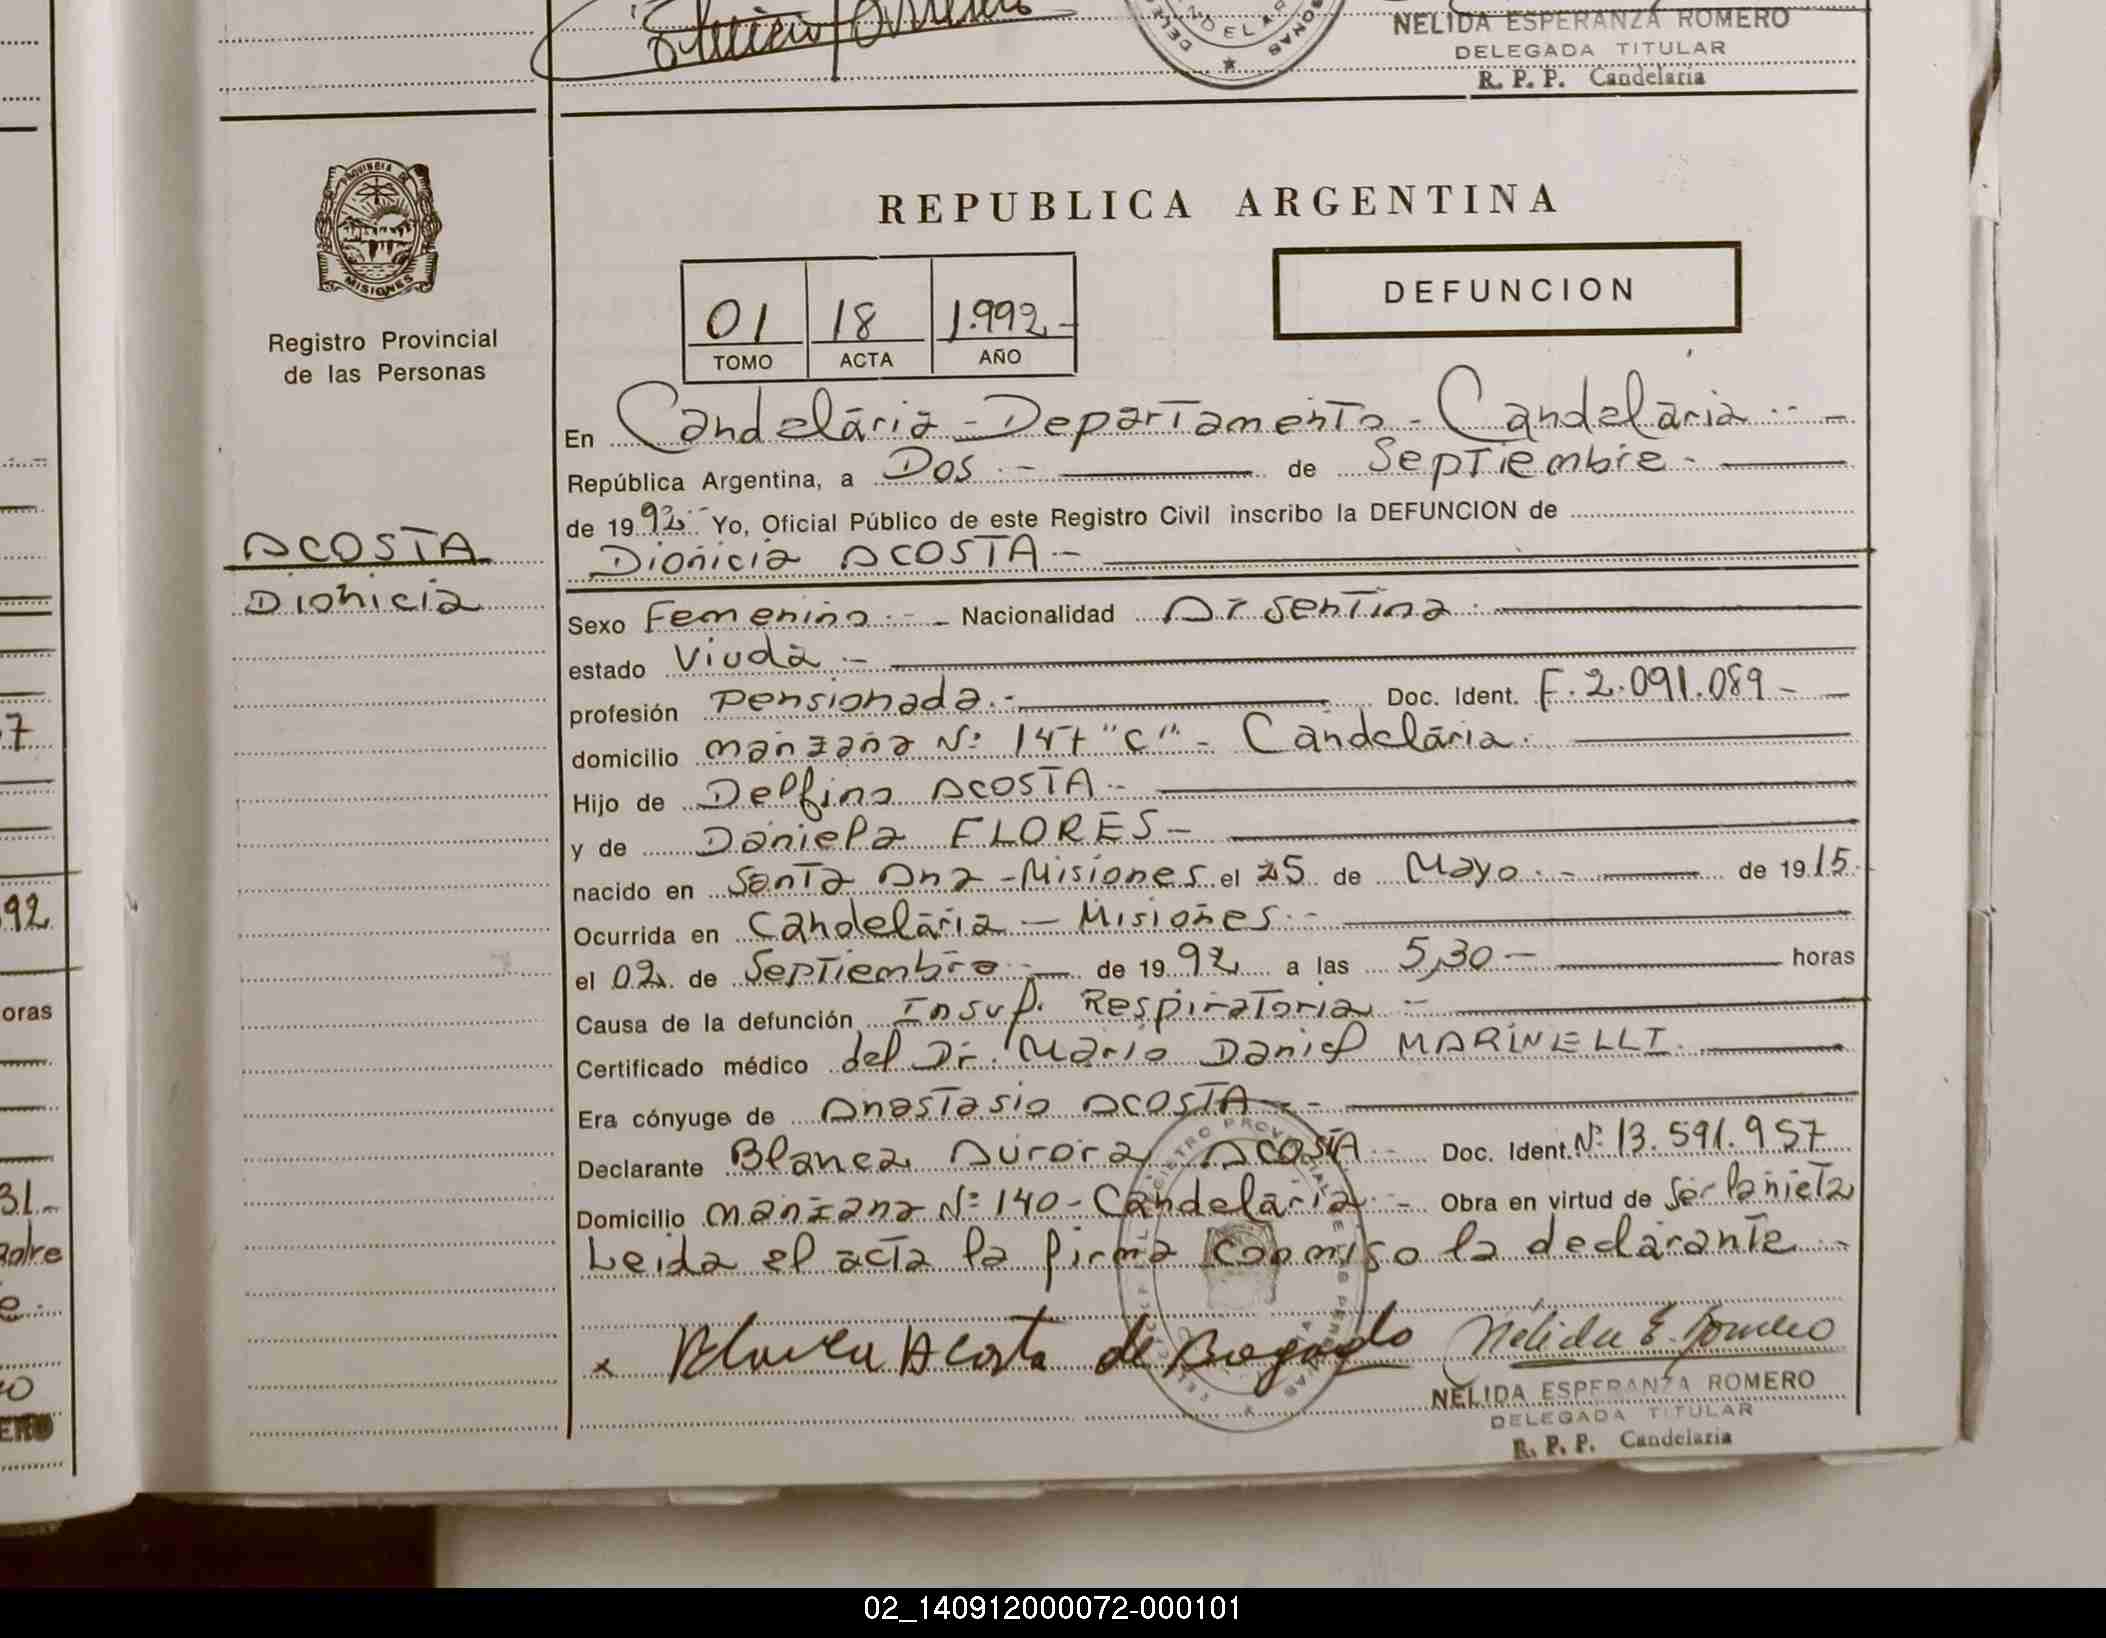 NELIDA ESPERANZA ROMERO
DELEGADA TITULAR
R. P. P. Candelaria
PROVINCIA DE
MISIONES
Registro Provincial
de las Personas
ACOSTA
Dionicia
REPUBLICA ARGENTINA
01 18 1.992-
TOMO ACTA AÑO
DEFUNCION
En Candelaria - Departamento - Candelaria
República Argentina, a Dos de Septiembre
de 1992 Yo, Oficial Público de este Registro Civil inscribo la DEFUNCION de
Dionicia ACOSTA
Sexo Femenino Nacionalidad Argentina
estado Viuda
profesión Pensionada Doc. Ident. F. 2.091.089
domicilio manzana Nº "C" - Candelaria
Hijo de Delfino ACOSTA
y de Daniela FLORES
nacido en Santa Ana - Misiones el de Mayo de 1915
Ocurrida en Candelaria - Misiones
el 02 de Septiembre de 1992 a las 5,30 horas
Causa de la defunción Insuf. Respiratoria
Certificado médico del Dr. Mario Daniel MARINELLI
Era cónyuge de Anastasio ACOSTA
Declarante Blanca Aurora ACOSTA Doc. Ident. Nº 13.591.957
Domicilio manzana Nº 140 - Candelaria Obra en virtud de Ser la nieta
Leida el acta la firma conmigo la declarante
x Blanca Acosta de Bogado Nélida E. Romero
NELIDA ESPERANZA ROMERO
DELEGADA TITULAR
R. P. P. Candelaria
7
92
oras
31.-
02_140912000072-000101